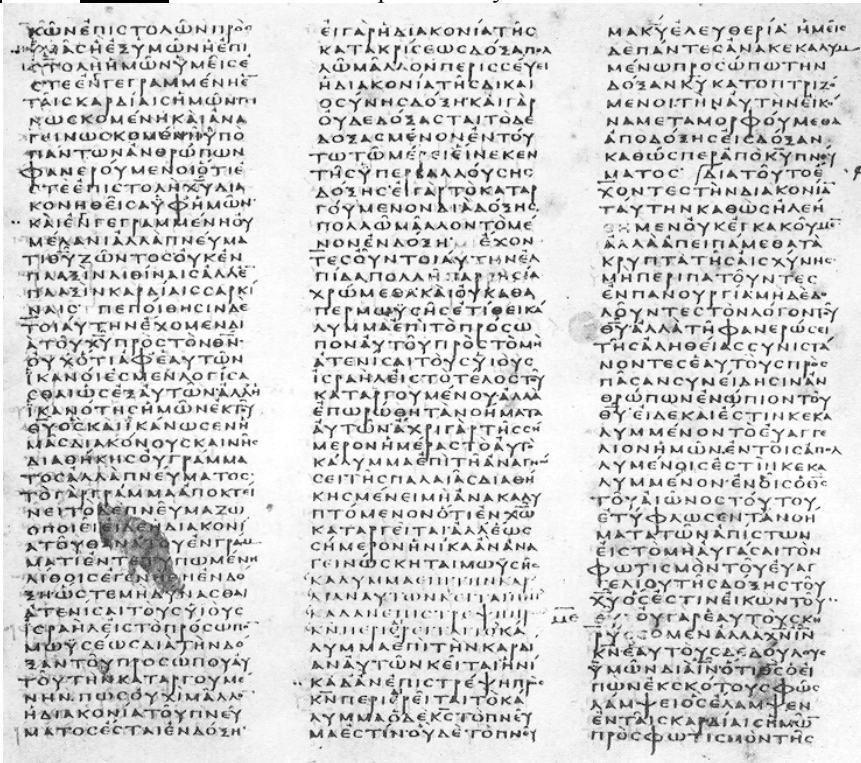 ΚΩΝΕΠΙϹΤΟΛΩΝΠΡΟϹ
ΥΜΑϹΗΕΞΥΜΩΝΗΕΠΙ
ϹΤΟΛΗΗΜΩΝΥΜΕΙϹΕ
ϹΤΕΕΝΓΕΓΡΑΜΜΕΝΗΕ̅
ΤΑΙϹΚΑΡΔΙΑΙϹΗΜΩΝΓΙ
ΝΩϹΚΟΜΕΝΗΚΑΙΑΝΑ
ΓΕΙΝΩϹΚΟΜΕΝΗΥΠΟ
ΠΑΝΤΩΝΑΝΘΡΩΠΩΝ
ΦΑΝΕΡΟΥΜΕΝΟΙΟΤΙΕ
ϹΤΕΕΠΙϹΤΟΛΗΧ̅Υ̅ΔΙΑ
ΚΟΝΗΘΕΙϹΑΥΦΗΜΩΝ
ΚΑΙΕΝΓΕΓΡΑΜΜΕΝΗΟΥ
ΜΕΛΑΝΙΑΛΛΑΠΝΕΥΜΑ
ΤΙΘ̅Υ̅ΖΩΝΤΟϹΟΥΚΕΝ
ΠΛΑΞΙΝΛΙΘΙΝΑΙϹΑΛΛΕ̅
ΠΛΑΞΙΝΚΑΡΔΙΑΙϹϹΑΡΚΙ
ΝΑΙϹ ΠΕΠΟΙΘΗϹΙΝΔΕ
ΤΟΙΑΥΤΗΝΕΧΟΜΕΝΔΙ
ΑΤΟΥΧ̅Υ̅ΠΡΟϹΤΟΝΘ̅Ν̅
ΟΥΧΟΤΙΑΦΕΑΥΤΩΝ
ΙΚΑΝΟΙΕϹΜΕΝΛΟΓΙϹΑ
ϹΘΑΙΩϹΕΞΑΥΤΩΝΑΛΛΗ
ΙΚΑΝΟΤΗϹΗΜΩΝΕΚΤΟΥ
Θ̅Υ̅ΟϹΚΑΙΙΚΑΝΩϹΕΝΗ
ΜΑϹΔΙΑΚΟΝΟΥϹΚΑΙΝΗϹ
ΔΙΑΘΗΚΗϹΟΥΓΡΑΜΜΑ
ΤΟϹΑΛΛΑΠΝΕΥΜΑΤΟϹ
ΤΟΓΑΡΓΡΑΜΜΑΑΠΟΚΤΕΙ
ΝΕΙΤΟΔΕΠΝΕΥΜΑΖΩ
ΟΠΟΙΕΙΕΙΔΕΗΔΙΑΚΟΝΙ
ΑΤΟΥΘΑΝΑΤΟΥΕΝΓΡΑΜ
ΜΑΤΙΕΝΤΕΤΥΠΩΜΕΝΗ
ΛΙΘΟΙϹΕΓΕΝΗΘΗΕΝΔΟ
ΞΗΩϹΤΕΜΗΔΥΝΑϹΘΑΙ
ΑΤΕΝΙϹΑΙΤΟΥϹΥΙΟΥϹ
ΙϹΡΑΗΛΕΙϹΤΟΠΡΟϹΩΠΟ̅
ΜΩΥϹΕΩϹΔΙΑΤΗΝΔΟ
ΞΑΝΤΟΥΠΡΟϹΩΠΟΥΑΥ
ΤΟΥΤΗΝΚΑΤΑΡΓΟΥΜΕ
ΝΗΝΠΩϹΟΥΧΙΜΑΛΛΟ̅
ΗΔΙΑΚΟΝΙΑΤΟΥΠΝΕΥ
ΜΑΤΟϹΕϹΤΑΙΕΝΔΟΞΗ
ΕΙΓΑΡΗΔΙΑΚΟΝΙΑΤΗϹ
ΚΑΤΑΚΡΙϹΕΩϹΔΟΞΑΠΟΛ
ΛΩΜΑΛΛΟΝΠΕΡΙϹϹΕΥΕΙ
ΗΔΙΑΚΟΝΙΑΤΗϹΔΙΚΑΙ
ΟϹΥΝΗϹΔΟΞΗΚΑΙΓΑΡ
ΟΥΔΕΔΟΞΑϹΤΑΙΤΟΔΕ
ΔΟΞΑϹΜΕΝΟΝΕΝΤΟΥ
ΤΩΤΩΜΕΡΕΙΕΙΝΕΚΕΝ
ΤΗϹΥΠΕΡΒΑΛΛΟΥϹΗϹ
ΔΟΞΗϹΕΙΓΑΡΤΟΚΑΤΑΡ
ΓΟΥΜΕΝΟΝΔΙΑΔΟΞΗϹ
ΠΟΛΛΩΜΑΛΛΟΝΤΟΜΕ
ΝΟΝΕΝΔΟΞΗ ΕΧΟΝ
ΤΕϹΟΥΝΤΟΙΑΥΤΗΝΕΛ
ΠΙΔΑΠΟΛΛΗΠΑΡΡΗϹΙΑ
ΧΡΩΜΕΘΑΚΑΙΟΥΚΑΘΑ
ΠΕΡΜΩΥϹΗϹΕΤΙΘΕΙΚΑ
ΛΥΜΜΑΕΠΙΤΟΠΡΟϹΩ
ΠΟΝΑΥΤΟΥΠΡΟϹΤΟΜΗ
ΑΤΕΝΙϹΑΙΤΟΥϹΥΙΟΥϹ
ΙϹΡΑΗΛΕΙϹΤΟΤΕΛΟϹΤΟΥ
ΚΑΤΑΡΓΟΥΜΕΝΟΥΑΛΛΑ
ΕΠΩΡΩΘΗΤΑΝΟΗΜΑΤΑ
ΑΥΤΩΝΑΧΡΙΓΑΡΤΗϹϹΗ
ΜΕΡΟΝΗΜΕΡΑϹΤΟΑΥΤΟ
ΚΑΛΥΜΜΑΕΠΙΤΗΑΝΑΓΝΩ
ϹΕΙΤΗϹΠΑΛΑΙΑϹΔΙΑΘΗ
ΚΗϹΜΕΝΕΙΜΗΑΝΑΚΑΛΥ
ΠΤΟΜΕΝΟΝΟΤΙΕΝΧ̅Ω̅
ΚΑΤΑΡΓΕΙΤΑΙΑΛΛΕΩϹ
ϹΗΜΕΡΟΝΗΝΙΚΑΑΝΑΝΑ
ΓΕΙΝΩϹΚΗΤΑΙΜΩΥϹΗϹ
ΚΑΛΥΜΜΑΕΠΙΤΗΝΚΑΡ
ΔΙΑΝΑΥΤΩΝΚΕΙΤΑΙΗΝΙ
ΚΑΔΑΝΕΠΙϹΤΡΕΨΗΠΡΟϹ
Κ̅Ν̅ΠΕΡΙΕΡΕΙΤΑΙΤΟΚΑ
ΛΥΜΜΑΕΠΙΤΗΝΚΑΡΔΙ
ΑΝΑΥΤΩΝΚΕΙΤΑΙΗΝΙ
ΚΑΔΑΝΕΠΙϹΤΡΕΨΗΠΡΟϹ
Κ̅Ν̅ΠΕΡΙΕΡΕΙΤΑΙΤΟΚΑ
ΛΥΜΜΑΟΔΕΚϹΤΟΠΝΕΥ
ΜΑΕϹΤΙΝΟΥΔΕΤΟΠΝΕΥ
ΜΑΚ̅Υ̅ΕΛΕΥΘΕΡΙΑ ΗΜΕΙϹ
ΔΕΠΑΝΤΕϹΑΝΑΚΕΚΑΛΥΜ
ΜΕΝΩΠΡΟϹΩΠΩΤΗΝ
ΔΟΞΑΝΚ̅Υ̅ΚΑΤΟΠΤΡΙΖΟ
ΜΕΝΟΙΤΗΝΑΥΤΗΝΕΙΚΟ
ΝΑΜΕΤΑΜΟΡΦΟΥΜΕΘΑ
ΑΠΟΔΟΞΗϹΕΙϹΔΟΞΑΝ
ΚΑΘΩϹΠΕΡΑΠΟΚ̅Υ̅ΠΝΕΥ
ΜΑΤΟϹ ΔΙΑΤΟΥΤΟΕ
ΧΟΝΤΕϹΤΗΝΔΙΑΚΟΝΙΑ̅
ΤΑΥΤΗΝΚΑΘΩϹΗΛΕΗ
ΘΗΜΕΝΟΥΚΕΓΚΑΚΟΥΜΕ̅
ΑΛΛΑΑΠΕΙΠΑΜΕΘΑΤΑ
ΚΡΥΠΤΑΤΗϹΑΙϹΧΥΝΗϹ
ΜΗΠΕΡΙΠΑΤΟΥΝΤΕϹ
ΕΝΠΑΝΟΥΡΓΙΑΜΗΔΕΔΟ
ΛΟΥΝΤΕϹΤΟΝΛΟΓΟΝΤΟΥ
Θ̅Υ̅ΑΛΛΑΤΗΦΑΝΕΡΩϹΕΙ
ΤΗϹΑΛΗΘΕΙΑϹϹΥΝΙϹΤΑ
ΝΟΝΤΕϹΕΑΥΤΟΥϹΠΡΟϹ
ΠΑϹΑΝϹΥΝΕΙΔΗϹΙΝΑΝ
ΘΡΩΠΩΝΕΝΩΠΙΟΝΤΟΥ
Θ̅Υ̅ΕΙΔΕΚΑΙΕϹΤΙΝΚΕΚΑ
ΛΥΜΜΕΝΟΝΤΟΕΥΑΓΓΕ
ΛΙΟΝΗΜΩΝΕΝΤΟΙϹΑΠΟΛ
ΛΥΜΕΝΟΙϹΕϹΤΙΝΚΕΚΑ
ΛΥΜΜΕΝΟΝΕΝΟΙϹΟΘΕΟϹ
ΤΟΥΑΙΩΝΟϹΤΟΥΤΟΥ
ΕΤΥΦΛΩϹΕΝΤΑΝΟΗ
ΜΑΤΑΤΩΝΑΠΙϹΤΩΝ
ΕΙϹΤΟΜΗΑΥΓΑϹΑΙΤΟΝ
ΦΩΤΙϹΜΟΝΤΟΥΕΥΑΓ
ΓΕΛΙΟΥΤΗϹΔΟΞΗϹΤΟΥ
Χ̅Υ̅ΟϹΕϹΤΙΝΕΙΚΩΝΤΟΥ
Μ̅Ε̅ Θ̅Υ̅ ΟΥΓΑΡΕΑΥΤΟΥϹΚΗ
ΡΥϹϹΟΜΕΝΑΛΛΑΧ̅Ν̅Ι̅Ν̅
Κ̅Ν̅ΕΑΥΤΟΥϹΔΕΔΟΥΛΟΥϹ
ΥΜΩΝΔΙΑΙ̅Ν̅ΟΤΙΟΘ̅Ϲ̅ΟΕΙ
ΠΩΝΕΚϹΚΟΤΟΥϹΦΩϹ
ΛΑΜΨΕΙΟϹΕΛΑΜΨΕΝ
ΕΝΤΑΙϹΚΑΡΔΙΑΙϹΗΜΩ̅
ΠΡΟϹΦΩΤΙϹΜΟΝΤΗϹ